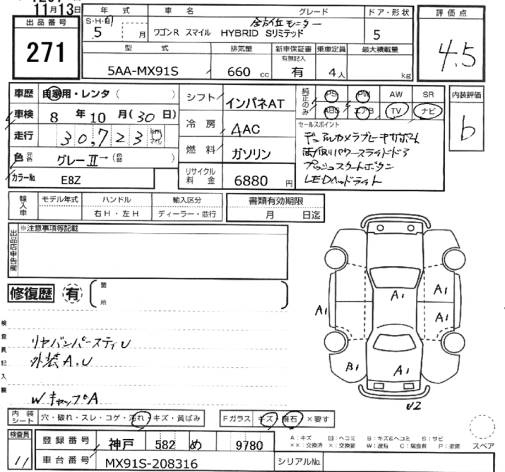 11月13日
出品番号
271
年式 車名 グレード ドア・形状
S・H・
5 月
ワゴンR スマイル HYBRID Sリミテッド
5
評価点
4.5
型式 排気量 新車保証書 乗車定員 最大積載量
有無記入
5AA-MX91S 660 cc 有 4人 kg
車歴 自家用・レンタ( )
車検 8年 10月(30日)
走行 30,723
色 元色 グレーⅡ→(色替 )
カラーNo E8Z
シフト インパネAT
冷房 AAC
燃料 ガソリン
リサイクル料金 6880 円
純正のみ PS PW AW SR
ABS エアB TV ナビ
セールスポイント
デュアルカメラブレーキサポート
両側パワースライドドア
プッシュスタートボタン
LEDヘッドライト
内装評価
b
輸入車 モデル年式 ハンドル 輸入区分
右H・左H ディーラー・並行
書類有効期限
月 日迄
出品店申告欄
※注意事項等記載
修復歴 有 箇所
検査員記入欄
リヤバンパースティU
外装A、U
WキャップA
A1
A1
A1
A1
B1
A1
U2
内装シート 穴・破れ・スレ・コゲ・汚れ・キズ・黄ばみ
Fガラス キズ 飛石 ×要す
スペア
検査員
11
登録番号 神戸 582 め 9780
車台番号 MX91S-208316
シリアルNo.
A：キズ B：キズ&ヘコミ S：サビ